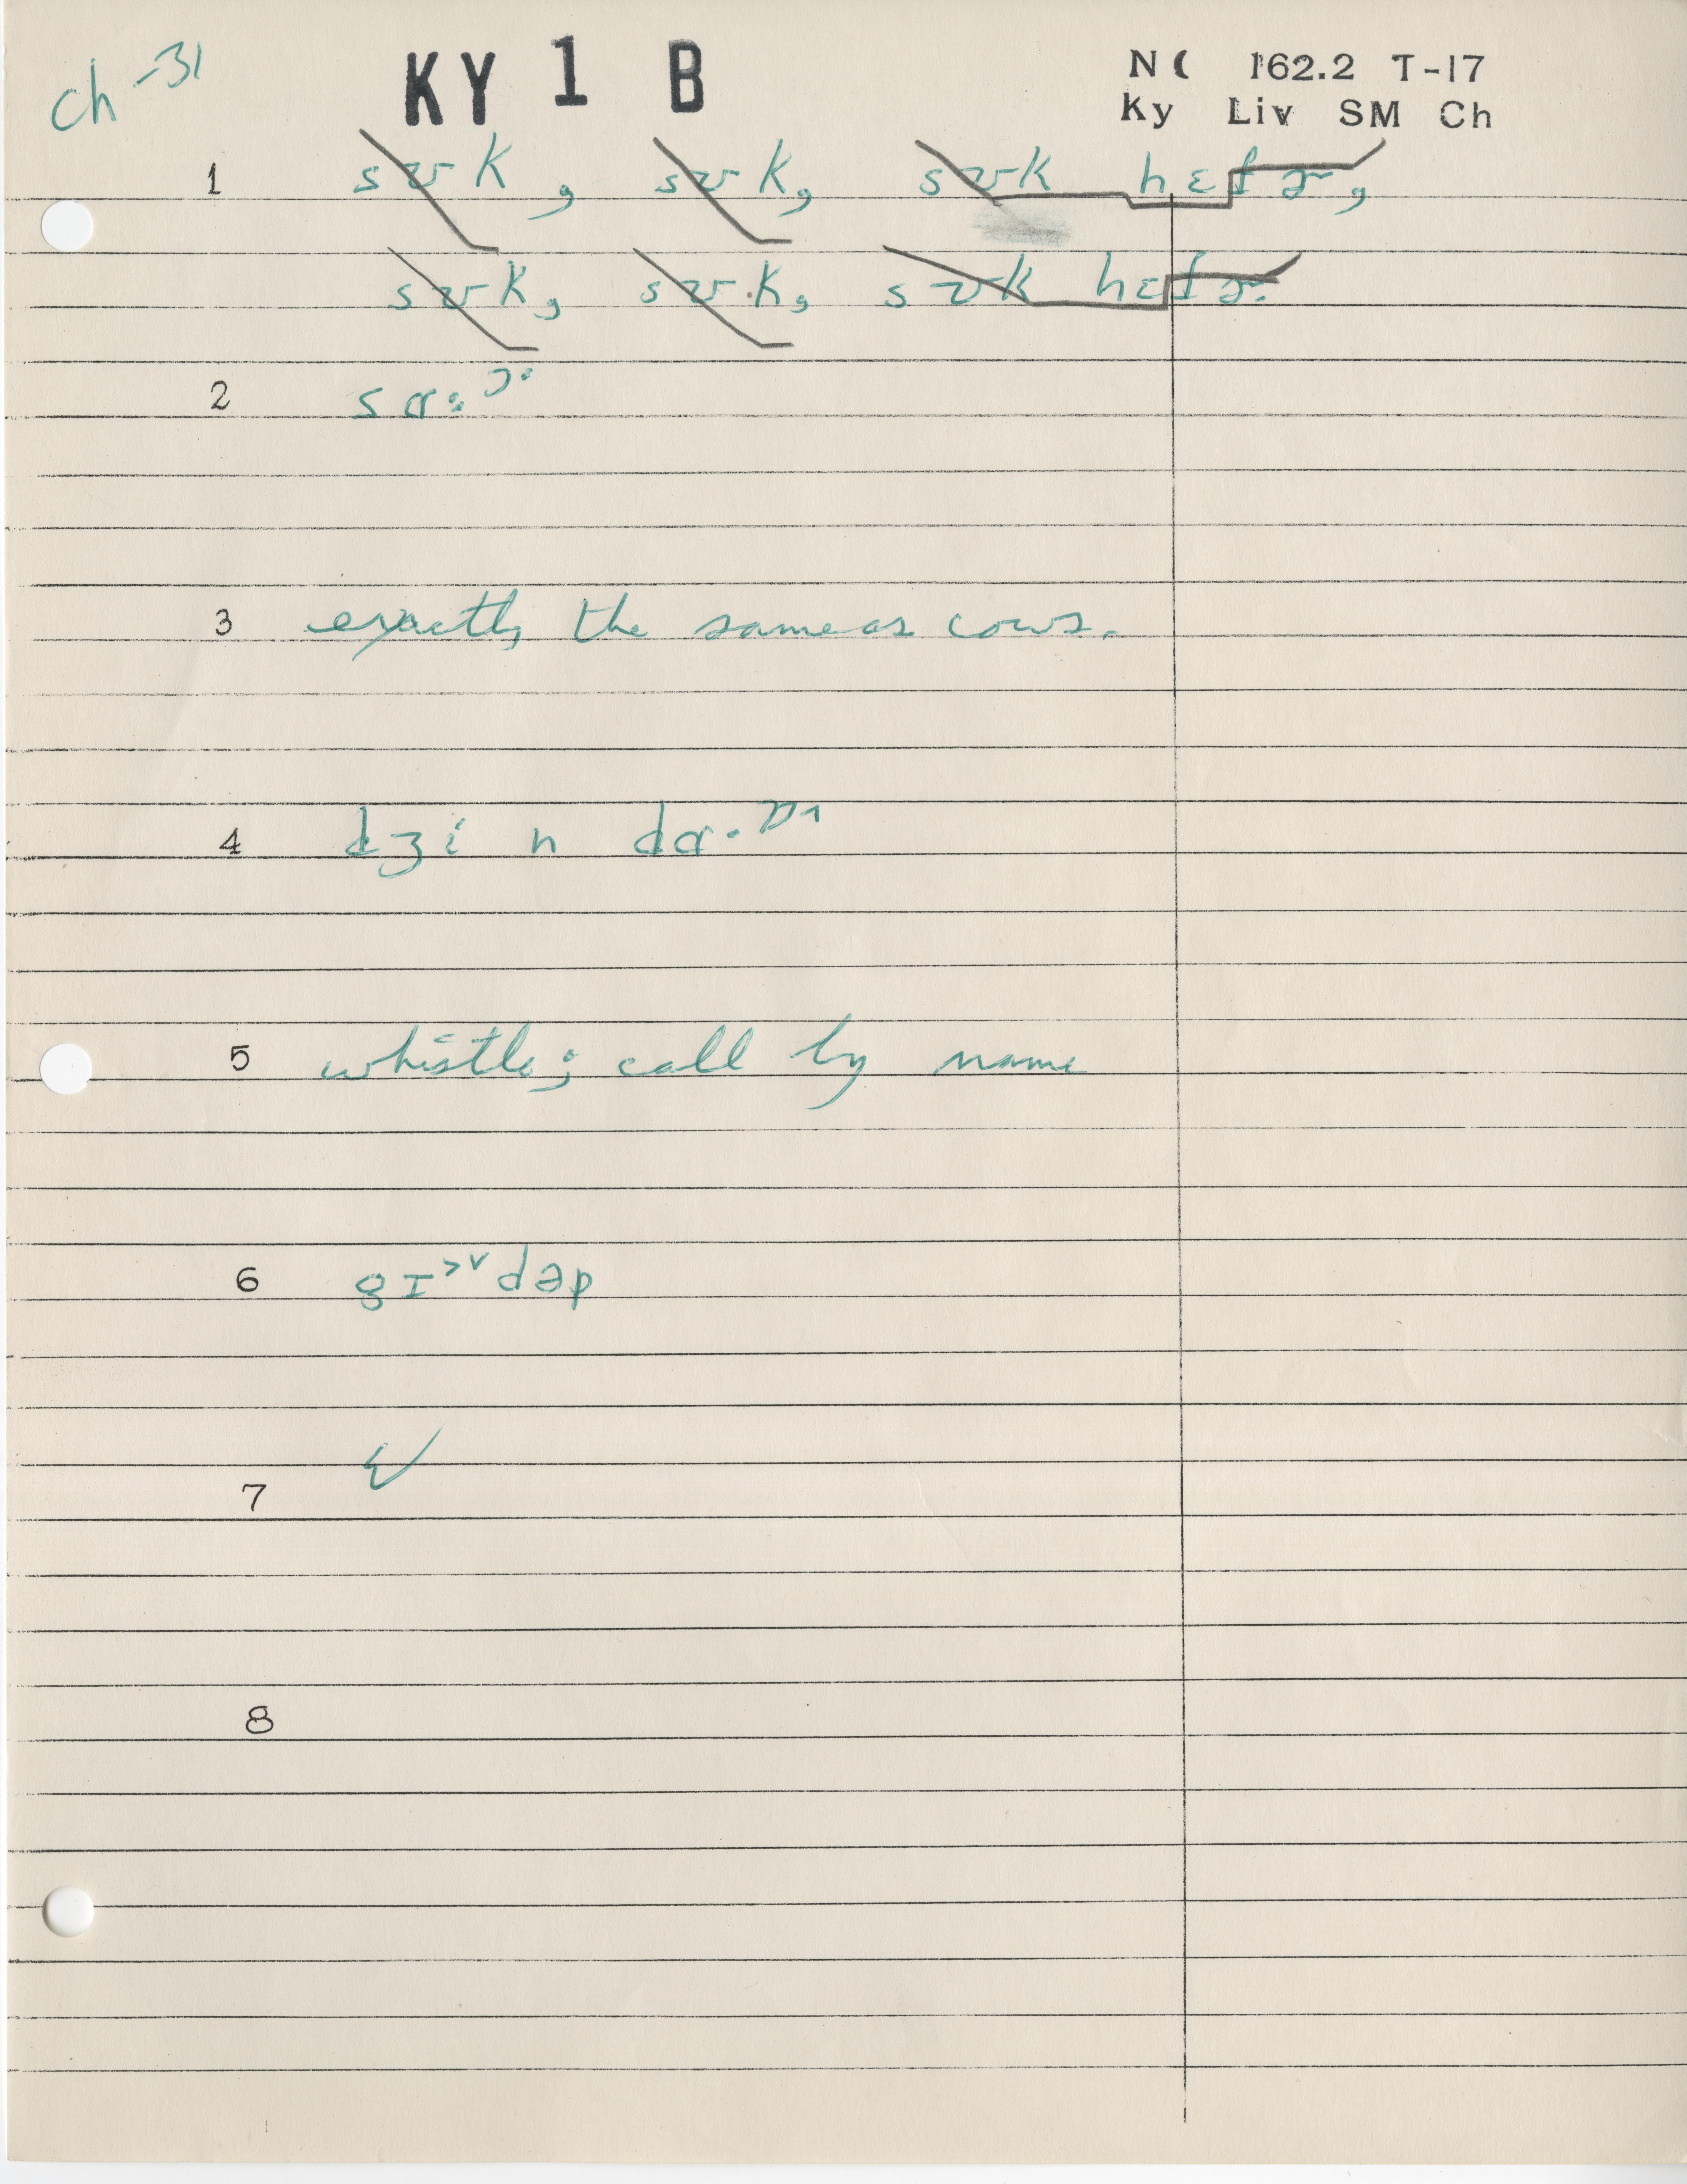 ch -31
KY 1 B
N( 162.2 T-17
Ky Liv SM Ch
1 sʊk, sʊk, sʊk hɛfɚ,
sʊk, sʊk, sʊk hɛfɚ.
2 sɑ·ɔ·
3 exactly the same as cows.
4 dʒi n dɑ·
5 whistle; call by name
6 gɪ˃˅dəp
7
8